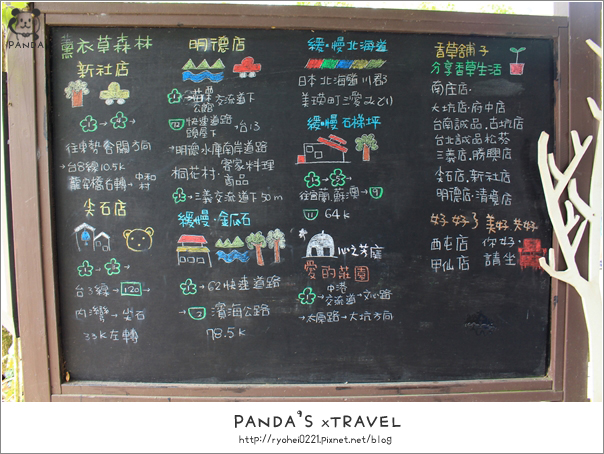 PANDA'S
薰衣草森林
新社店
往東勢谷關方向
→台8線10.5K
龍谷橋右轉→中和村
尖石店
台3線→120
內灣→尖石
33K左轉
明德店
交流道下
快速道路
頭屋下→台13
→明德水庫南岸道路
桐花村.客家料理
商品
→三義交流道下50m
緩慢.金瓜石
→62快速道路
→2濱海公路
78.5K
緩.慢北海道
日本北海道川郡
美瑛町三愛みどり
緩.慢石梯坪
往宜蘭,蘇澳→9
11 64K
心之芳庭
愛的莊園
中港
→交流道→文心路
→太原路→大坑方向
香草舖子
分享香草生活
南庄店.
大坑店.府中店
台南誠品.古坑店
台北誠品松菸
三義店.勝興店
尖石店.新社店
明德店.清境店
好好 美好美好
西屯店 你好.
甲仙店 請坐
PANDA'S xTRAVEL
http://ryohei0221.pixnet.net/blog